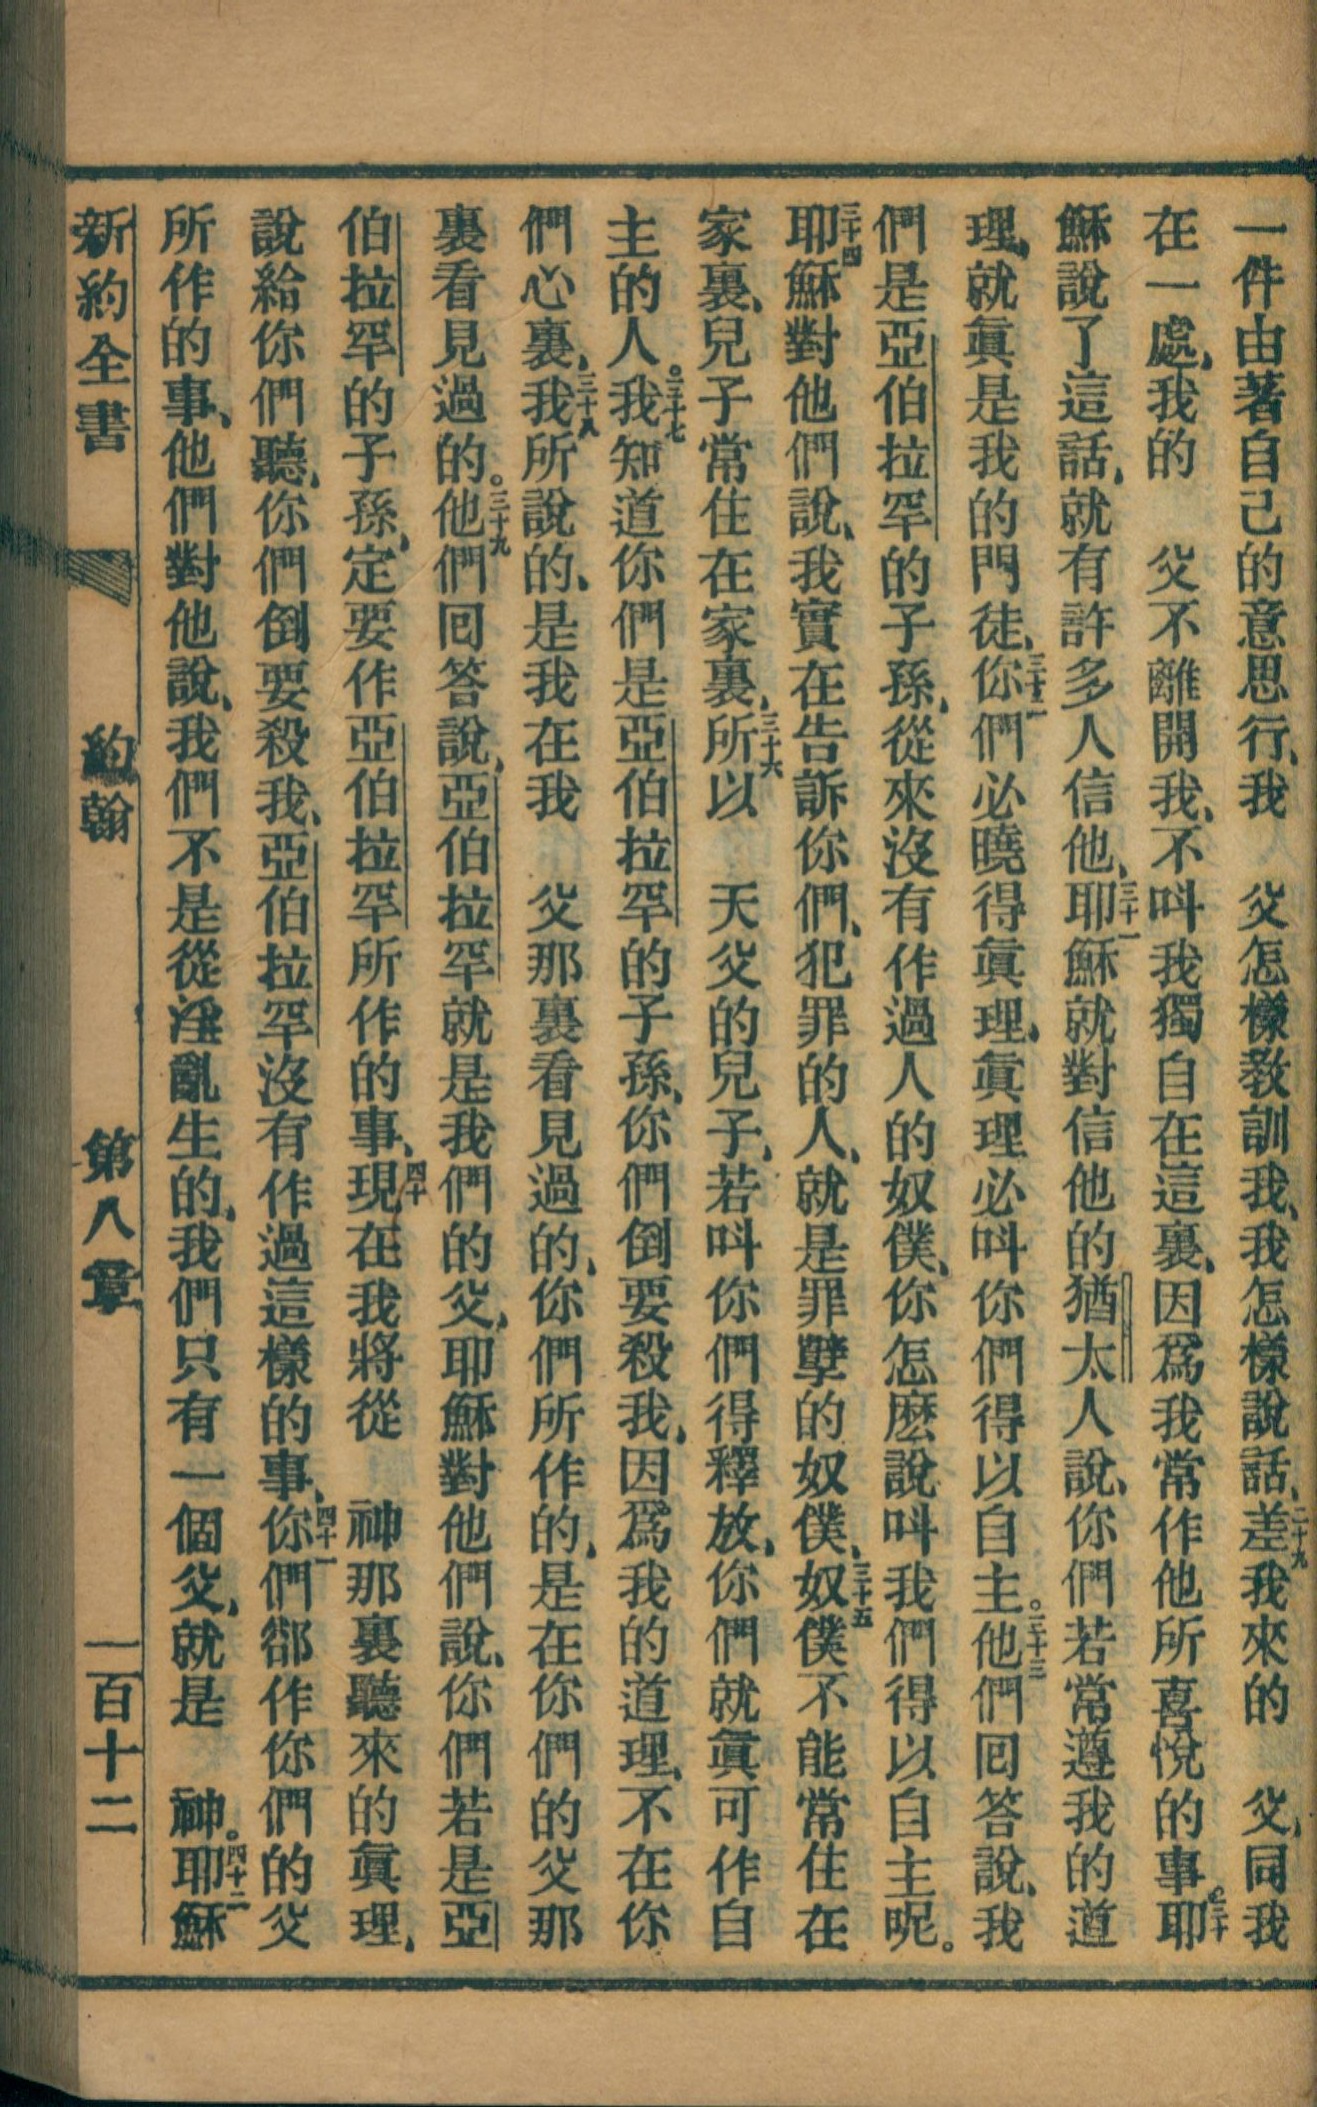 一件由著自己的意思行、我　父怎樣教訓我、我怎樣說話、二十九差我來的　父、同我
在一處、我的　父不離開我、不呌我獨自在這裏、因爲我常作他所喜悅的事、三十耶
穌說了這話、就有許多人信他、三十一耶穌就對信他的猶太人說、你們若常遵我的道
理、就眞是我的門徒、三十二你們必曉得眞理、眞理必呌你們得以自主。三十三他們回答說、我
們是亞伯拉罕的子孫、從來沒有作過人的奴僕、你怎麽說呌我們得以自主呢。
三十四耶穌對他們說、我實在告訴你們、犯罪的人、就是罪孽的奴僕、三十五奴僕不能常住在
家裏、兒子常住在家裏、三十六所以　天父的兒子、若呌你們得釋放、你們就眞可作自
主的人。三十七我知道你們是亞伯拉罕的子孫、你們倒要殺我、因爲我的道理、不在你
們心裏、三十八我所說的、是我在我　父那裏看見過的、你們所作的、是在你們的父那
裏看見過的。三十九他們回答說、亞伯拉罕就是我們的父、耶穌對他們說、你們若是亞
伯拉罕的子孫、定要作亞伯拉罕所作的事、四十現在我將從　神那裏聽來的眞理、
說給你們聽、你們倒要殺我、亞伯拉罕沒有作過這樣的事、四十一你們郤作你們的父
所作的事、他們對他說、我們不是從淫亂生的、我們只有一個父、就是　神。四十二耶穌
新約全書　約翰　第八章　一百十二